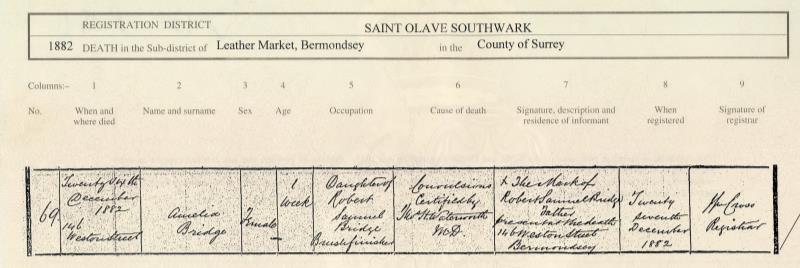 REGISTRATION DISTRICT SAINT OLAVE SOUTHWARK
1882 DEATH in the Sub-district of Leather Market, Bermondsey in the County of Surrey
Columns:- 1 2 3 4 5 6 7 8 9
No. When and where died Name and surname Sex Age Occupation Cause of death Signature, description and residence of informant When registered Signature of registrar
69
Twenty Sixth
December
1882
146
Weston Street
Amelia
Bridge
Female
1
Week
Daughter of
Robert
Samuel
Bridge
Brushfinisher
Convulsions
Certified by
M.D.
X The Mark of
Robert Samuel Bridge
Father
present at the death
146 Weston Street
Bermondsey
Twenty
seventh
December
1882
Cross
Registrar